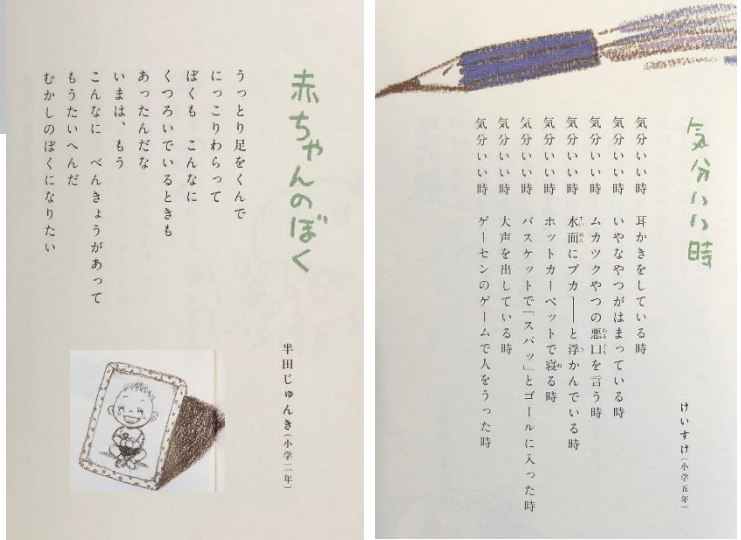 気分いい時
けいすけ(小学五年)
気分いい時 耳かきをしている時
気分いい時 いやなやつがはまっている時
気分いい時 ムカツクやつの悪口を言う時
気分いい時 水面にプカ――と浮かんでいる時
気分いい時 ホットカーペットで寝る時
気分いい時 バスケットで「スパッ」とゴールに入った時
気分いい時 大声を出している時
気分いい時 ゲーセンのゲームで人をうった時
赤ちゃんのぼく
半田じゅんき(小学二年)
うっとり足をくんで
にっこりわらって
ぼくも こんなに
くつろいでいるときも
あったんだな
いまは、もう
こんなに べんきょうがあって
もうたいへんだ
むかしのぼくになりたい